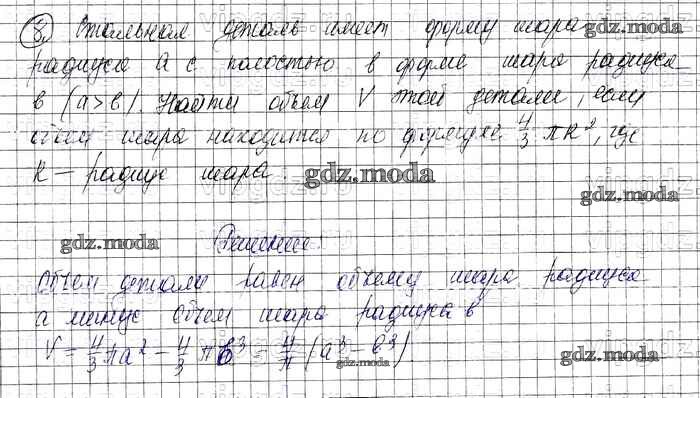 8. Стальная деталь имеет форму шара gdz.moda
радиуса a с полостью в форме шара радиуса
в (a>в). Найти объем V этой детали, если
объем шара находится по формуле 4/3 πR², где
R – радиус шара gdz.moda
gdz.moda
gdz.moda Решение.
Объем детали равен объему шара радиуса
a минус объем шара радиуса в
V = 4/3 πa² - 4/3 πб³ - 4/π (a³ - в³)
gdz.moda gdz.moda